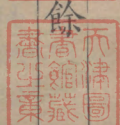 餘
天津圖
書館藏
書之章